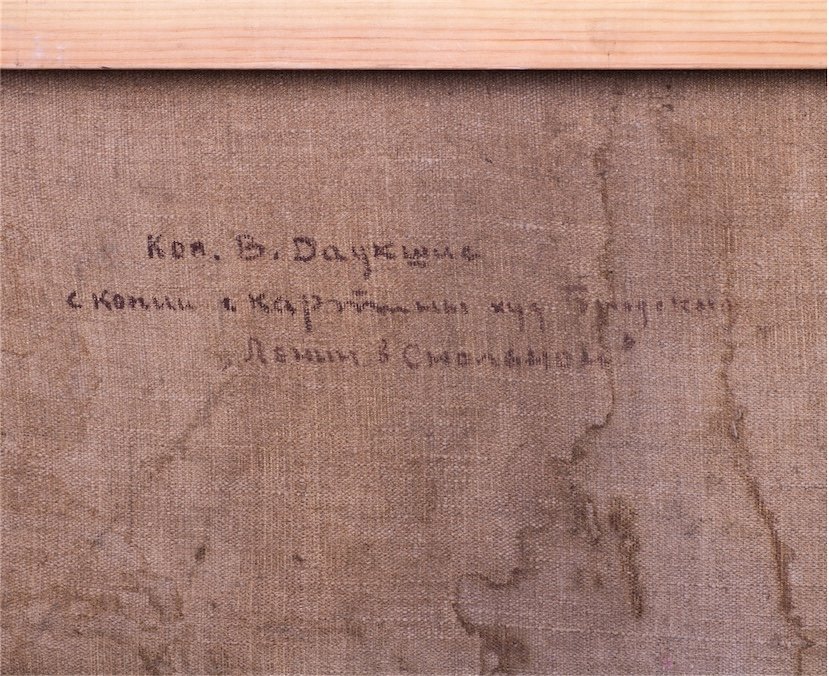 Коп. В. Даукшис
с копии с картины худ Бродского
"Ленин в Смольном"